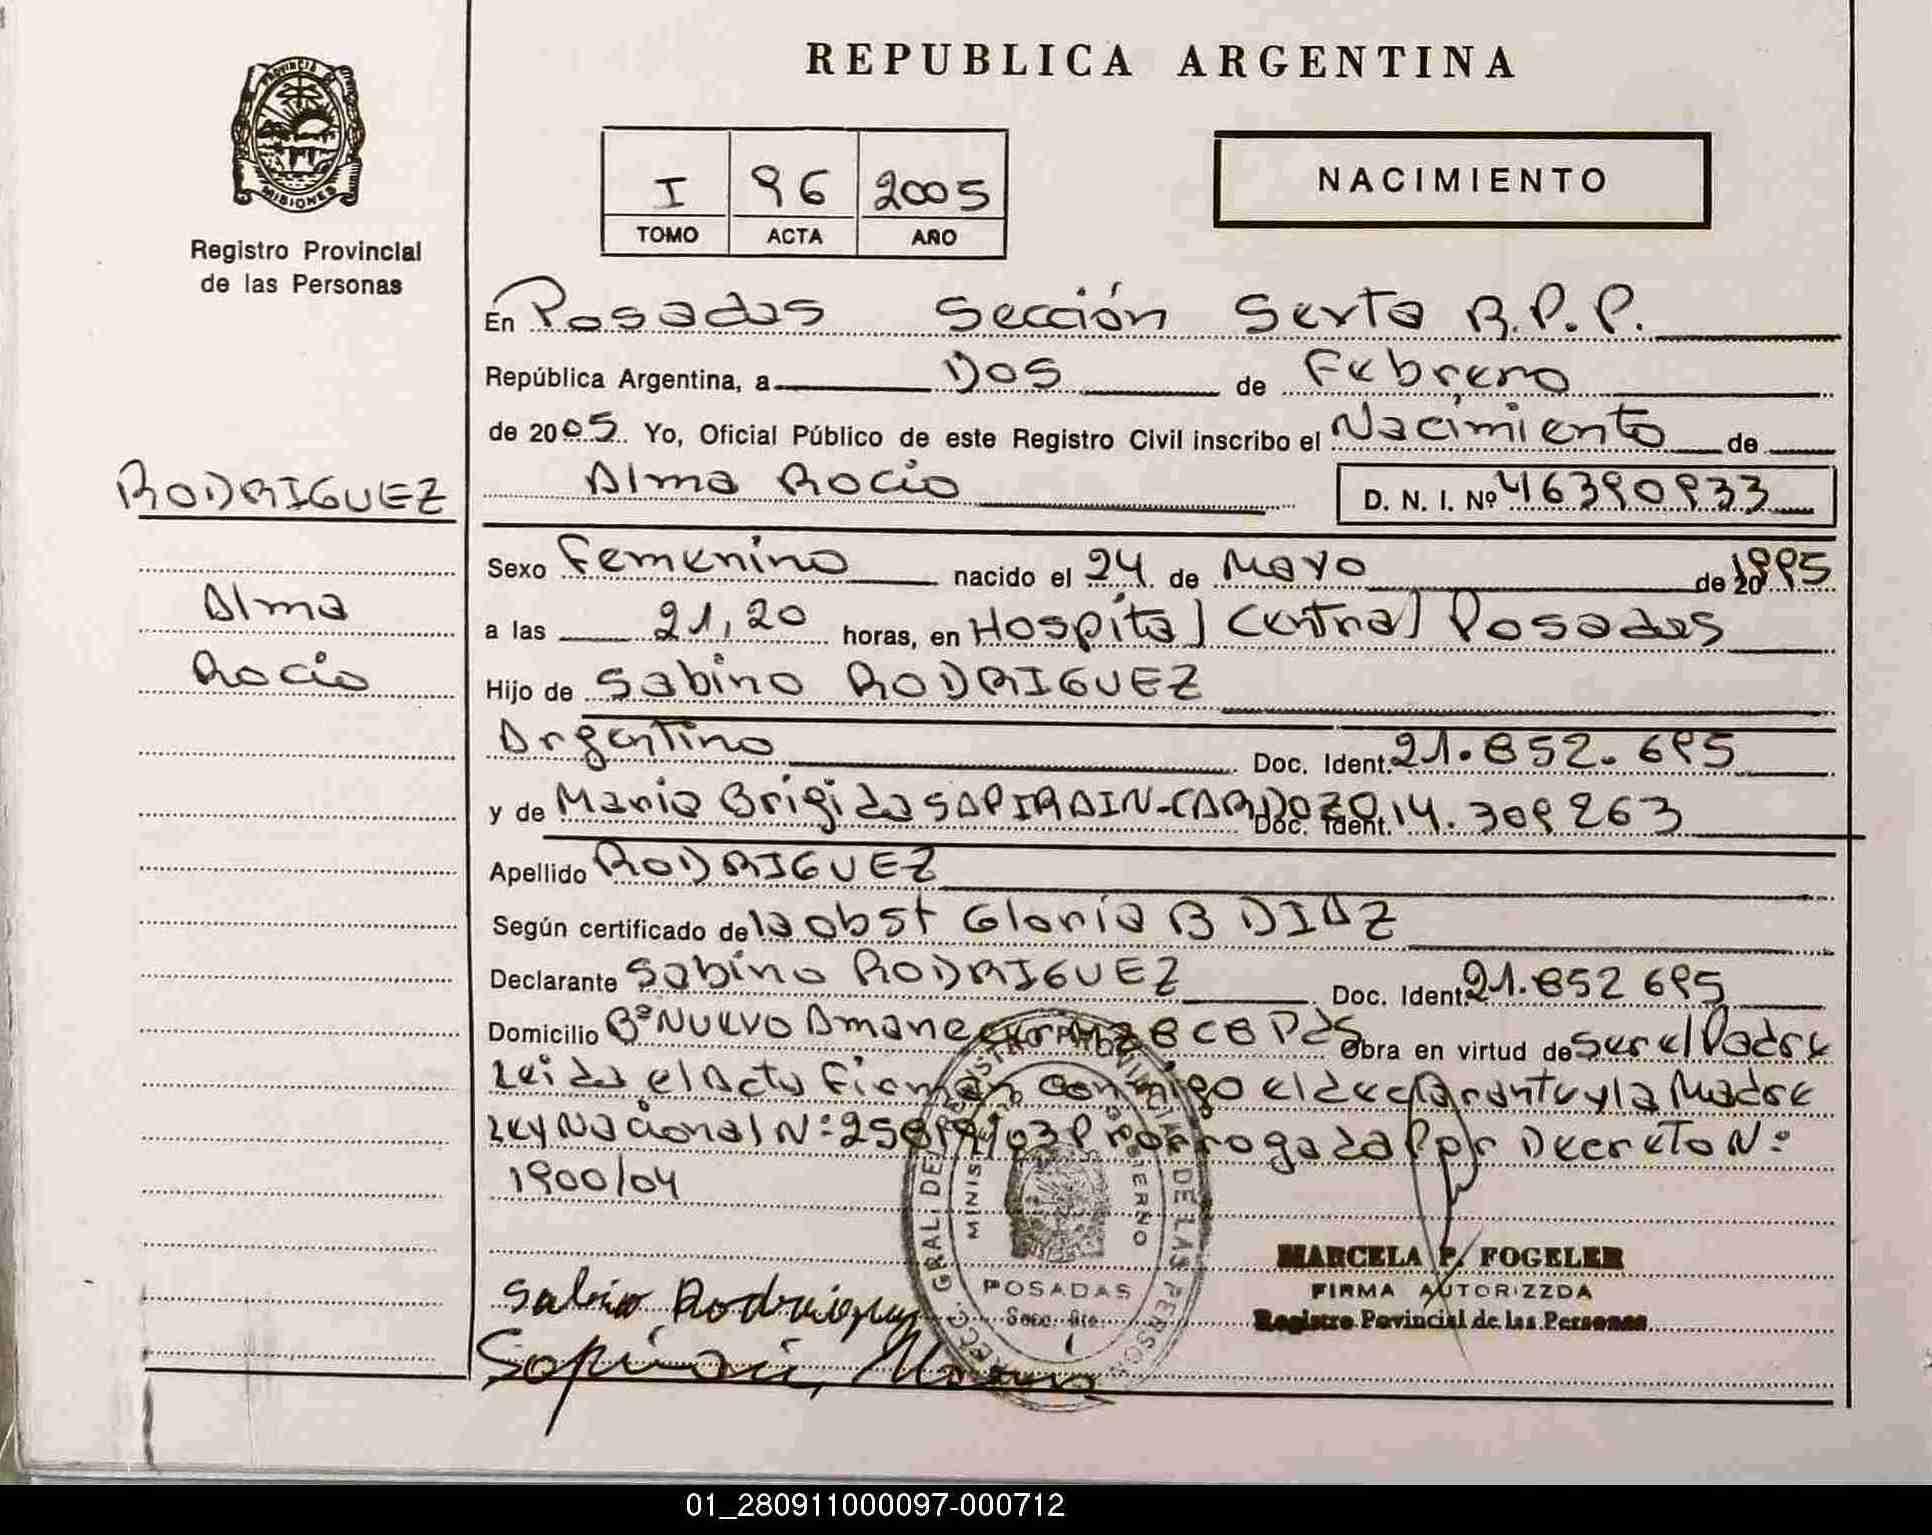 REPUBLICA ARGENTINA
PROVINCIA
MISIONES
Registro Provincial
de las Personas
I 96 2005
TOMO ACTA AÑO
NACIMIENTO
En Posadas Sección Sexta R.P.P.
República Argentina, a Dos de Febrero
de 2005. Yo, Oficial Público de este Registro Civil inscribo el Nacimiento de
RODRIGUEZ
Alma Rocio D. N. I. Nº 46390933
Sexo Femenino nacido el 24 de Mayo de 20 1995
Alma
a las 21,20 horas, en Hospital Central Posadas
Rocio
Hijo de Sabino RODRIGUEZ
Argentino Doc. Ident. 21.852.695
y de Maria Brigida SAPIRAIN-CARDOZO Doc. Ident. 14.309263
Apellido RODRIGUEZ
Según certificado de la obst Gloria B DIAZ
Declarante Sabino RODRIGUEZ Doc. Ident. 21.852 695
Domicilio Bº Nuevo Amanecer Pds Obra en virtud de Ser el Padre
Leida el Acta Firman conmigo el declarante y la Madre
Ley Nacional Nº 25819/03 Prorrogada Por Decreto Nº
1900/04
MINIS ERNO
POSADAS
Sabino Rodriguez
MARCELA P. FOGELER
FIRMA AUTORIZZDA
Registro Povincial de las Personas
01_280911000097-000712